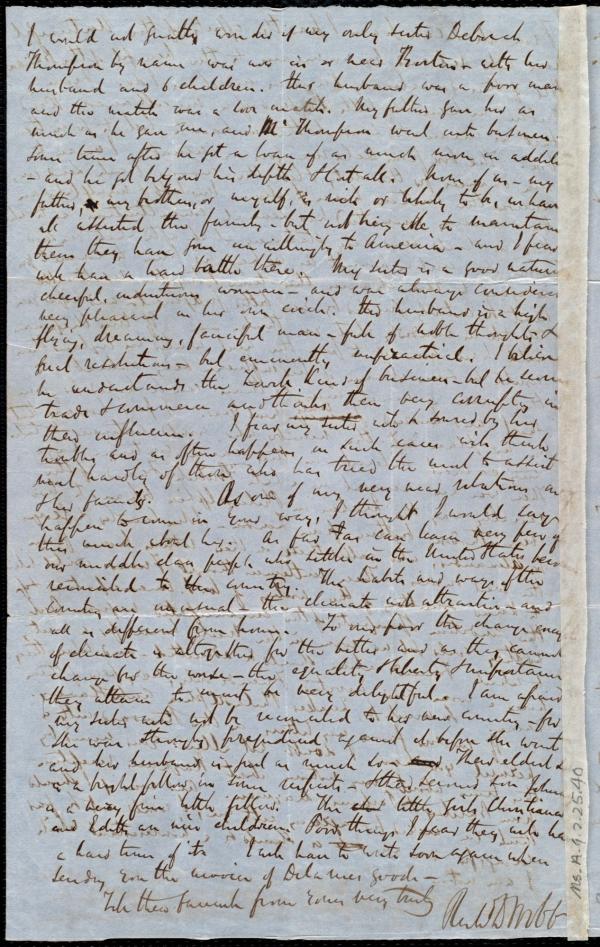 I would not greatly wonder if my only sister Deborah
Thompson by name was now in or near Boston - with her
husband and 6 children. Her husband was a poor man
and the match was a love match. My father gave her as
much as he gave me, and Mr Thompson went into business.
Some time after he got a loan of as much more in addition
- and he got beyond his depth & lost all. None of us - my
father, my brothers, or myself, is rich or likely to be, we have
all assisted the family - but not being able to maintain
them they have gone unwillingly to America - and I fear
will have a hard battle there. My sister is a good natured
cheerful, industrious woman - and was always considered
very pleasant in her own circle. Her husband is a high
flying, dreamy, fanciful man - full of noble thoughts &
good resolutions - but eminently unpractical. I believe
he understands the hard kind of business - but he
trade & commerce and thinks them very corrupting in
their influence. I fear my sister will be soured by her
troubles and as often happens in such cases will think
most hardly of those who has tried the most to assist
her family. As one of my very near relations may
happen to come in your way, I thought I would say
this much about her. As far as I can learn very few of
our middle class people who settle in the United States become
reconciled to the country. The habits and ways of the
country are unusual - the climate not attractive - and
all is different from home. To our poor the change even
of climate is altogether for the better and as they cannot
change for the worse - the equality & liberty & importance
they attain to must be very delightful. I am afraid
my sister will not be reconciled to her new country - for
she was strongly prejudiced against it before she went
and her husband is just as much so - Their eldest
is a bright fellow in some respects - & their second son John
is a very fine little fellow. The little girls Christiana
and Edith are nice children. Poor things I fear they will have
a hard time of it. I will have to write soon again when
sending you the invoice of Delames goods -
Till then farewell from yours very truly
Richd D Webb
Ms. A.1.2.25.40